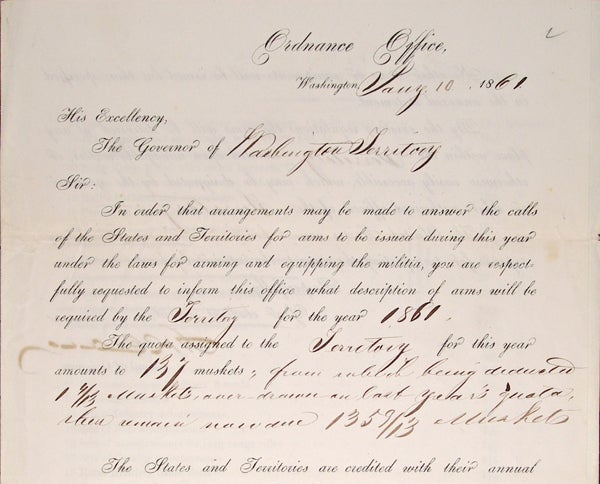 Ordnance Office,
Washington, Jany 10. 1861.
His Excellency,
The Governor of Washington Territory
Sir:
In order that arrangements may be made to answer the calls
of the States and Territories for arms to be issued during this year
under the laws for arming and equipping the militia, you are respect-
fully requested to inform this office what description of arms will be
required by the Territory for the year 1861.
The quota assigned to the Territory for this year
amounts to 137 muskets; from which being deducted
Muskets, over-drawn on last year's quota,
there remain now due 135 9/13 Muskets
The States and Territories are credited with their annual